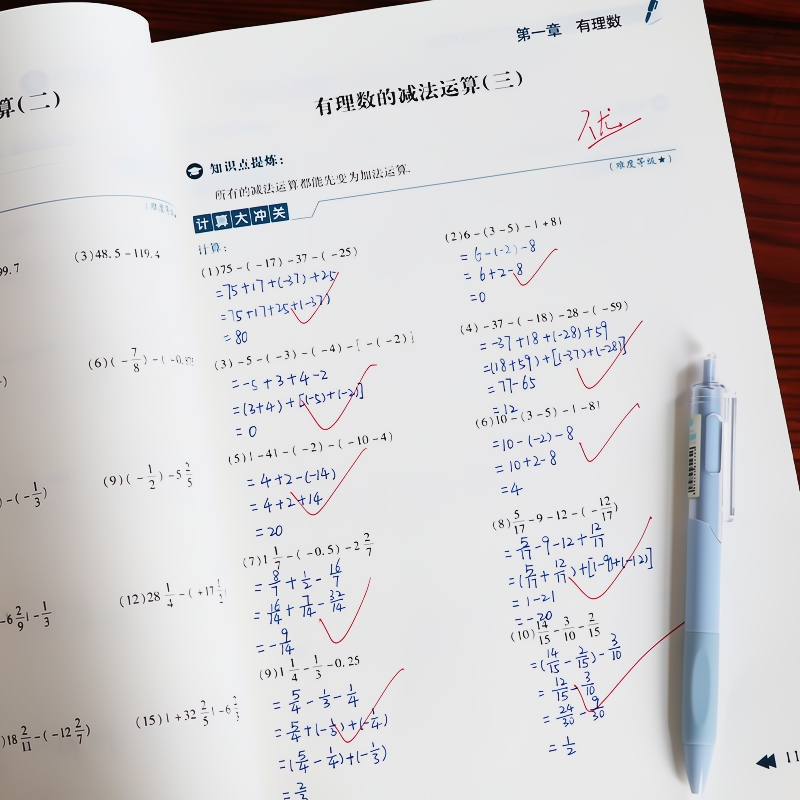 算(二)
99.7
(3)48.5-119.4
(6)(-7/8)-(-0.875
)-(-1/3)
(9)(-1/2)-5 2/5
-6 2/9|-1/3
(12)28 1/4-(+17 1/2
)18 2/11-(-12 2/7)
(15)|+32 2/5|-6 2/3
第一章 有理数
有理数的减法运算(三)
优
知识点提炼:
所有的减法运算都能先变为加法运算.
(难度等级★)
计算大冲关
计算:
(1)75-(-17)-37-(-25)
=75+17+(-37)+25
=75+17+25+(-37)
=80
(2)6-(3-5)-|+8|
=6-(-2)-8
=6+2-8
=0
(3)-5-(-3)-(-4)-[-(-2)]
=-5+3+4-2
=(3+4)+[(-5)+(-2)]
=0
(4)-37-(-18)-28-(-59)
=-37+18+(-28)+59
=(18+59)+[(-37)+(-28)]
=77-65
=12
(5)|-4|-(-2)-(-10-4)
=4+2-(-14)
=4+2+14
=20
(6)10-(3-5)-|-8|
=10-(-2)-8
=10+2-8
=4
(7)1 1/7-(-0.5)-2 2/7
=8/7+1/2-16/7
=16/14+7/14-32/14
=-9/14
(8)5/17-9-12-(-12/17)
=5/17-9-12+12/17
=(5/17+12/17)+[(-9)+(-12)]
=1-21
=-20
(9)1 1/4-1/3-0.25
=5/4-1/3-1/4
=5/4+(-1/3)+(-1/4)
=(5/4-1/4)+(-1/3)
=2/3
(10)14/15-3/10-2/15
=(14/15-2/15)-3/10
=12/15-3/10
=24/30-9/30
=1/2
11